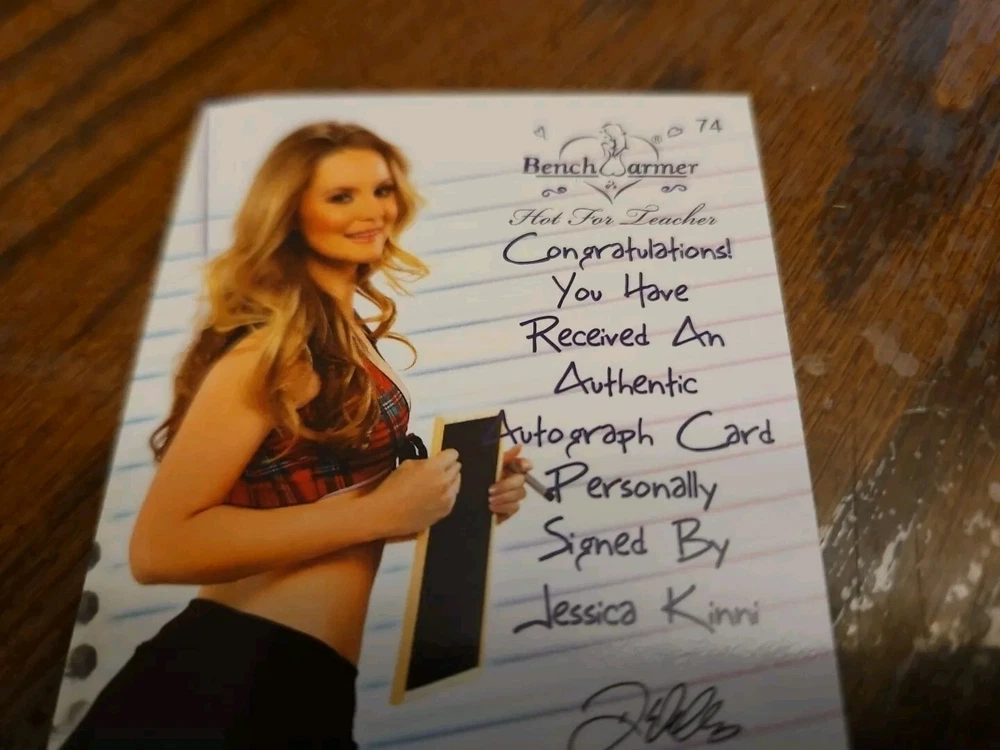 74
BenchWarmer ®
Hot For Teacher
Congratulations!
You Have
Received An
Authentic
Autograph Card
Personally
Signed By
Jessica Kinni